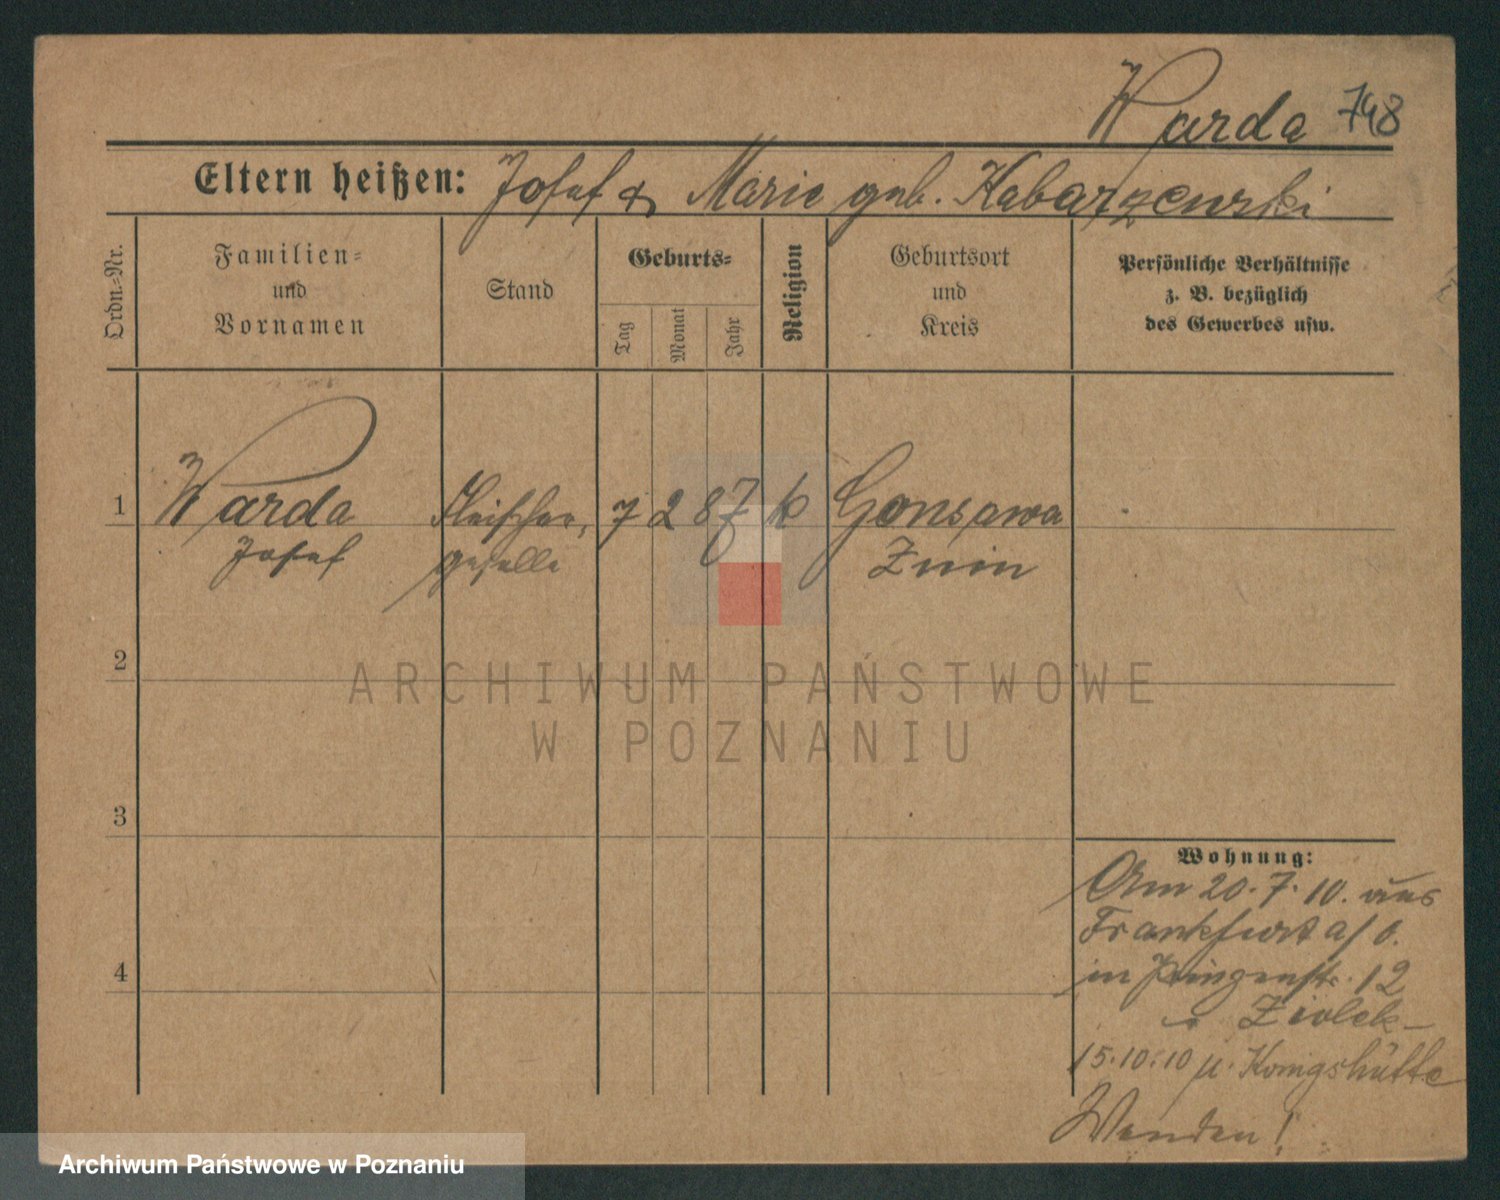 Warda 748
Eltern heißen: Josef & Marie geb. Kabarzewski
Ordn.-Nr.
Familien-
und
Vornamen
Stand
Geburts-
Tag
Monat
Jahr
Religion
Geburtsort
und
Kreis
Persönliche Verhältnisse
z. B. bezüglich
des Gewerbes usw.
1
Warda
Josef
Fleischer,
geselle
7 2 87 k
Gonsawa
Znin
2
3
4
Wohnung:
Am 20.7.10. aus
Frankfurt a/O.
in Prinzenstr. 12
Ziolek
15.10.10 n. Königshütte
Wenden!
ARCHIWUM PAŃSTWOWE
W POZNANIU
Archiwum Państwowe w Poznaniu